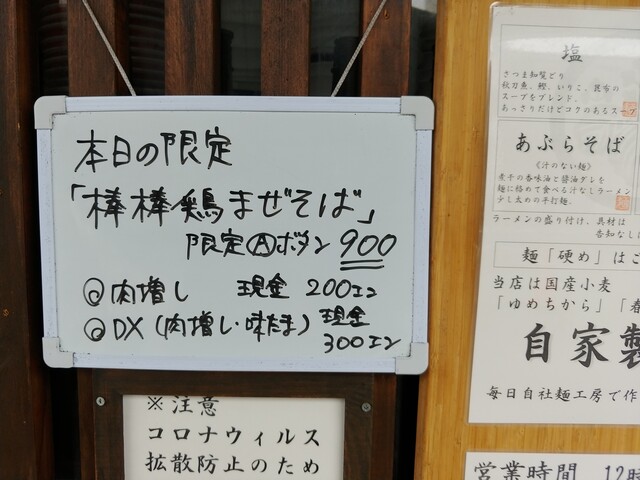 本日の限定
「棒棒鶏まぜそば」
限定Ⓐボタン 900
◎肉増し 現金 200エン
◎DX(肉増し・味たま) 現金
300エン
※注意
コロナウィルス
拡散防止のため
塩
さつま知覧どり
秋刀魚、鰹、いりこ、昆布の
スープをブレンド。
あっさりだけどコクのあるスープ
あぶらそば
《汁のない麺》
煮干の香味油と醤油ダレを
麺に絡めて食べる汁なしラーメン
少し太めの平打麺。
ラーメンの盛り付け、具材は
告知なしに
麺「硬め」はご
当店は国産小麦
「ゆめちから」「春
自家製
毎日自社麺工房で作
営業時間 12時